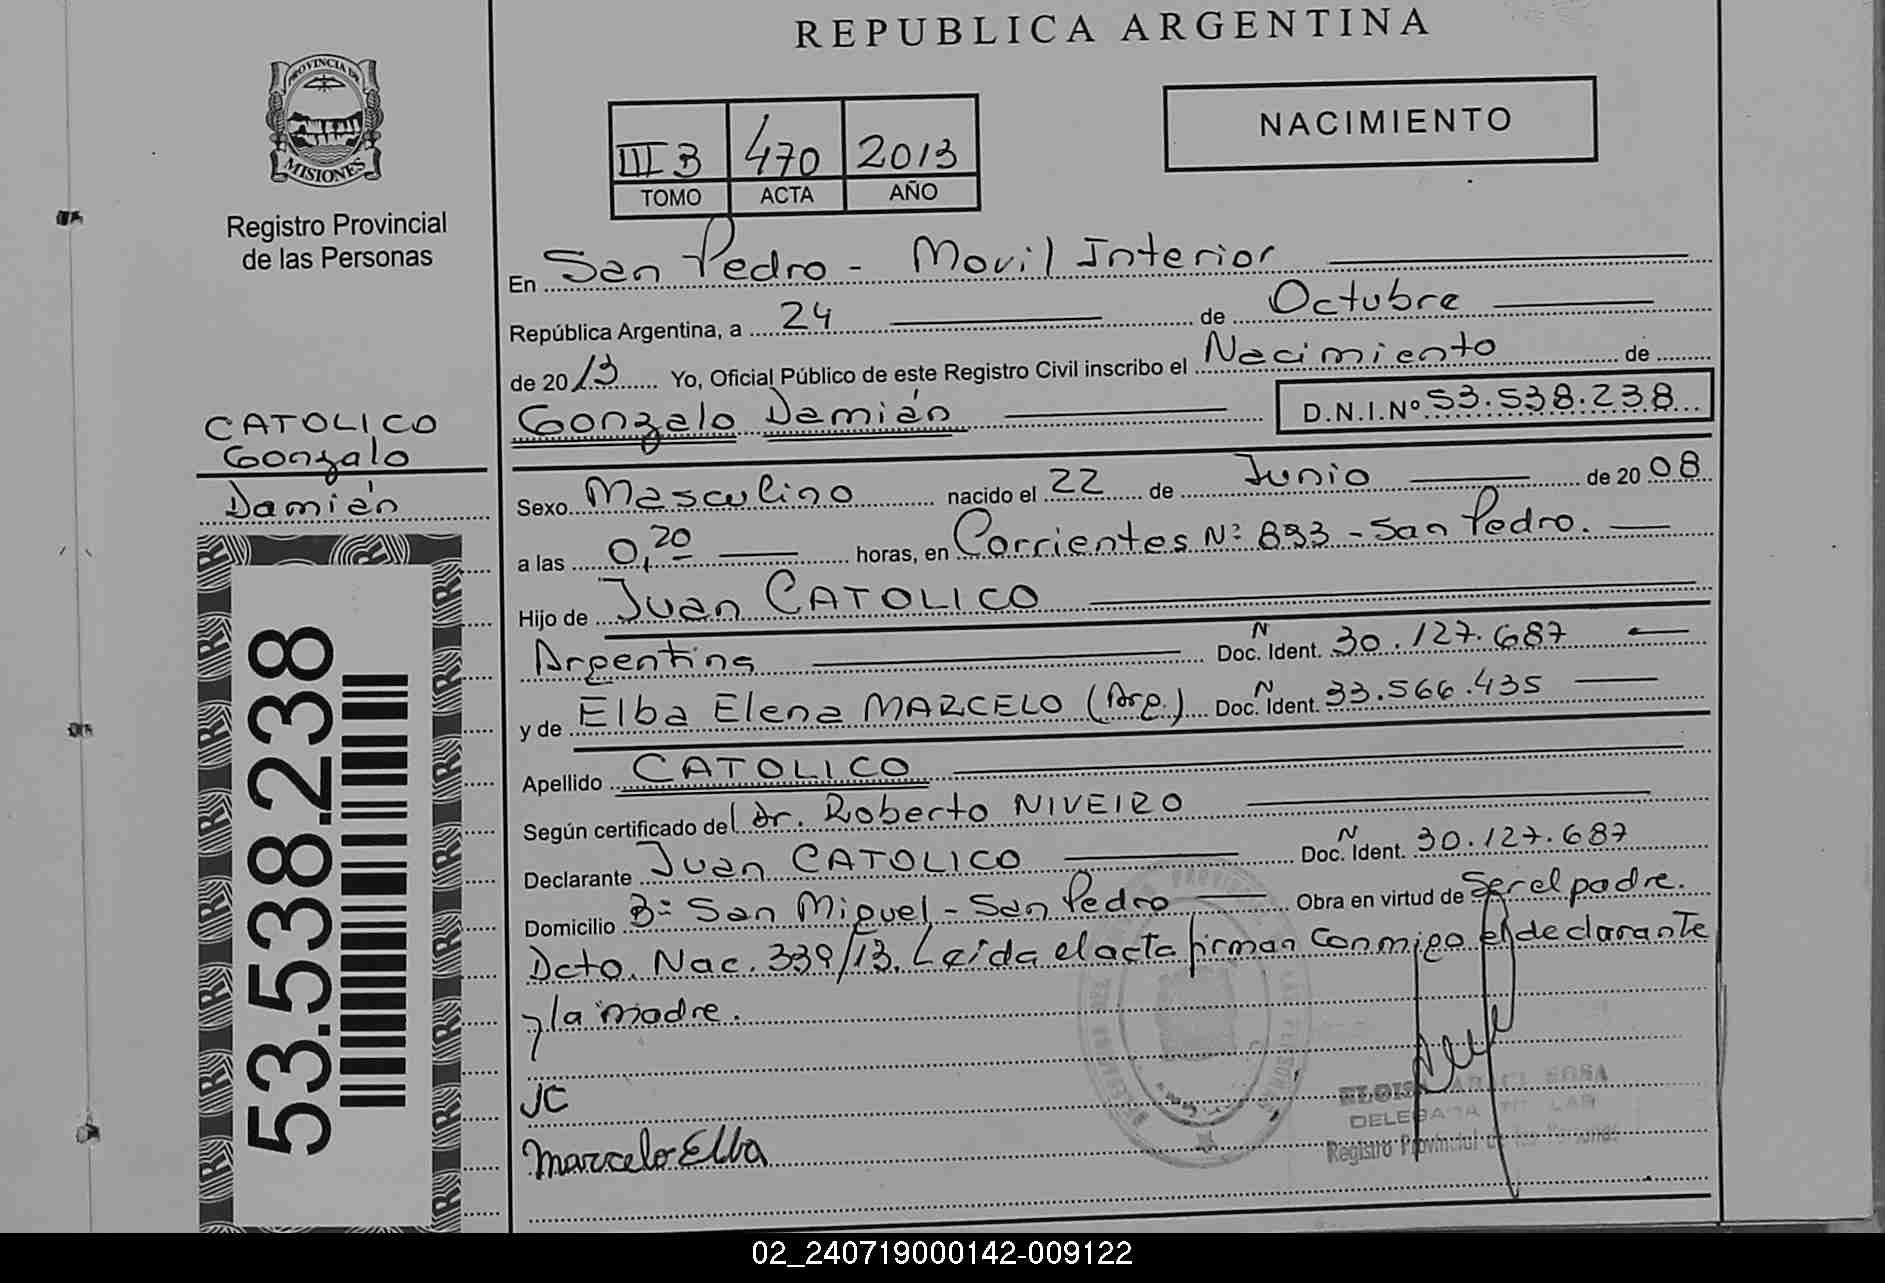 REPUBLICA ARGENTINA
PROVINCIA DE
MISIONES
Registro Provincial
de las Personas
NACIMIENTO
III B 470 2013
TOMO ACTA AÑO
En San Pedro - Movil Interior
República Argentina, a 24 de Octubre
de 2013 Yo, Oficial Público de este Registro Civil inscribo el Nacimiento de
Gonzalo Damián D.N.I.Nº 53.538.238
CATOLICO
Gonzalo
Damián
Sexo Masculino nacido el 22 de Junio de 2008
a las 0,20 horas, en Corrientes Nº 893 - San Pedro.
Hijo de Juan CATOLICO
Argentina Doc. Ident. N 30.127.687
y de Elba Elena MARCELO (Arg.) Doc. Ident. N 33.566.435
Apellido CATOLICO
Según certificado del Dr. Roberto NIVEIRO
Declarante Juan CATOLICO Doc. Ident. N 30.127.687
Domicilio Bº San Miguel - San Pedro Obra en virtud de Ser el padre.
Dcto. Nac. 339/13. Leída el acta firman conmigo el declarante
y la madre.
JC
Marcelo Elba
SOSA
DELEGADA TITULAR
Registro Provincial de las Personas
53.538.238
02_240719000142-009122